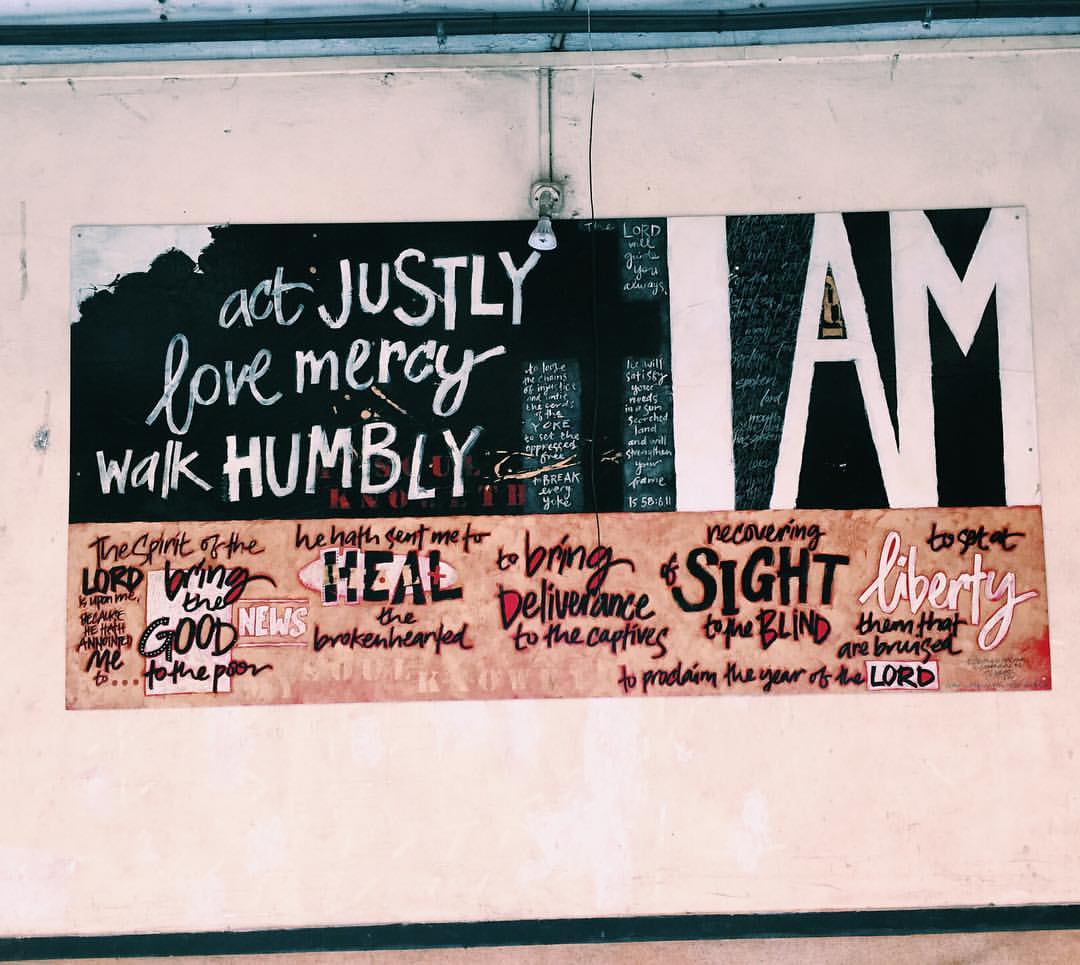 act JUSTLY
love mercy
walk HUMBLY
SOUL
KNOWETH
The LORD
will
guide
you
always,
to loose
the chains
of injustice
and untie
the cords
of the
YOKE
to set the
oppressed
free
to BREAK
every
yoke
he will
satisfy
your
needs
in a sun
scorched
land
and will
strengthen
your
frame
Is 58:6,11
I AM
The Spirit of the
LORD
is upon me,
BECAUSE
HE HATH
ANNOINTED
Me
to....
bring
the
GOOD
NEWS
to the poor
he hath sent me to
HEAL
the
brokenhearted
to bring
Deliverance
to the captives
recovering
of SIGHT
to the BLIND
to set at
liberty
them that
are bruised
to proclaim the year of the LORD
SOUL KNOW